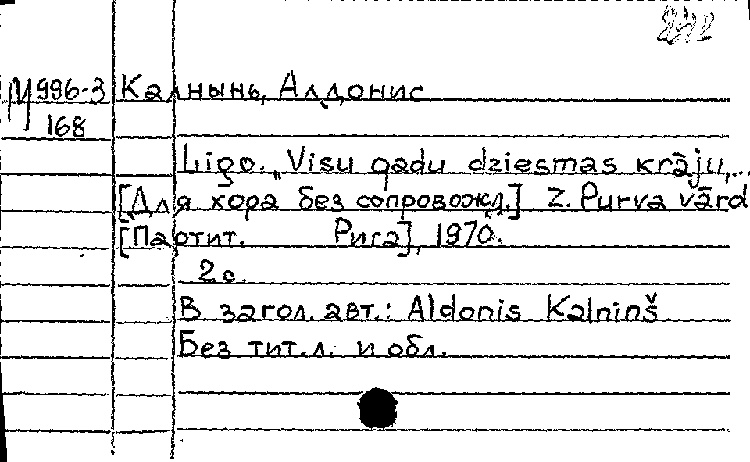 М 996-3 Калнынь, Алдонис
168
Līgo. „Visu gadu dziesmas krāju,...
[Для хора без сопровожд.] Z. Purva vārd
[Партит. Рига], 1970.
2 с.
В загол. авт.: Aldonis Kalniņš
Без тит.л. и обл.